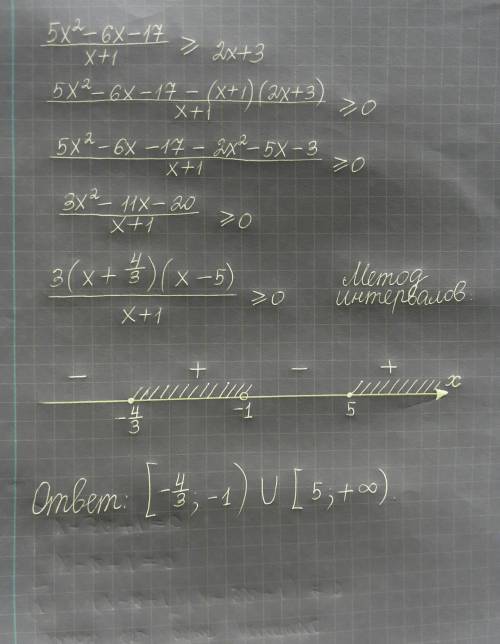 (5x² − 6x − 17)/(x+1) ≥ 2x+3
(5x² − 6x − 17 − (x+1)(2x+3))/(x+1) ≥ 0
(5x² − 6x − 17 − 2x² − 5x − 3)/(x+1) ≥ 0
(3x² − 11x − 20)/(x+1) ≥ 0
3(x + 4/3)(x − 5)/(x+1) ≥ 0
Метод
интервалов.
− + − +
-4/3 -1 5 x
Ответ: [-4/3; -1) ∪ [5; +∞).